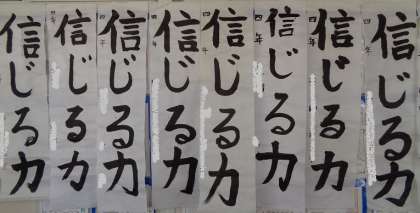 信じる力
四年
信じる力
四年
信じる力
四年
信じる力
四年
信じる力
四年
信じる力
四年
信じる力
四年
信じる力
四年